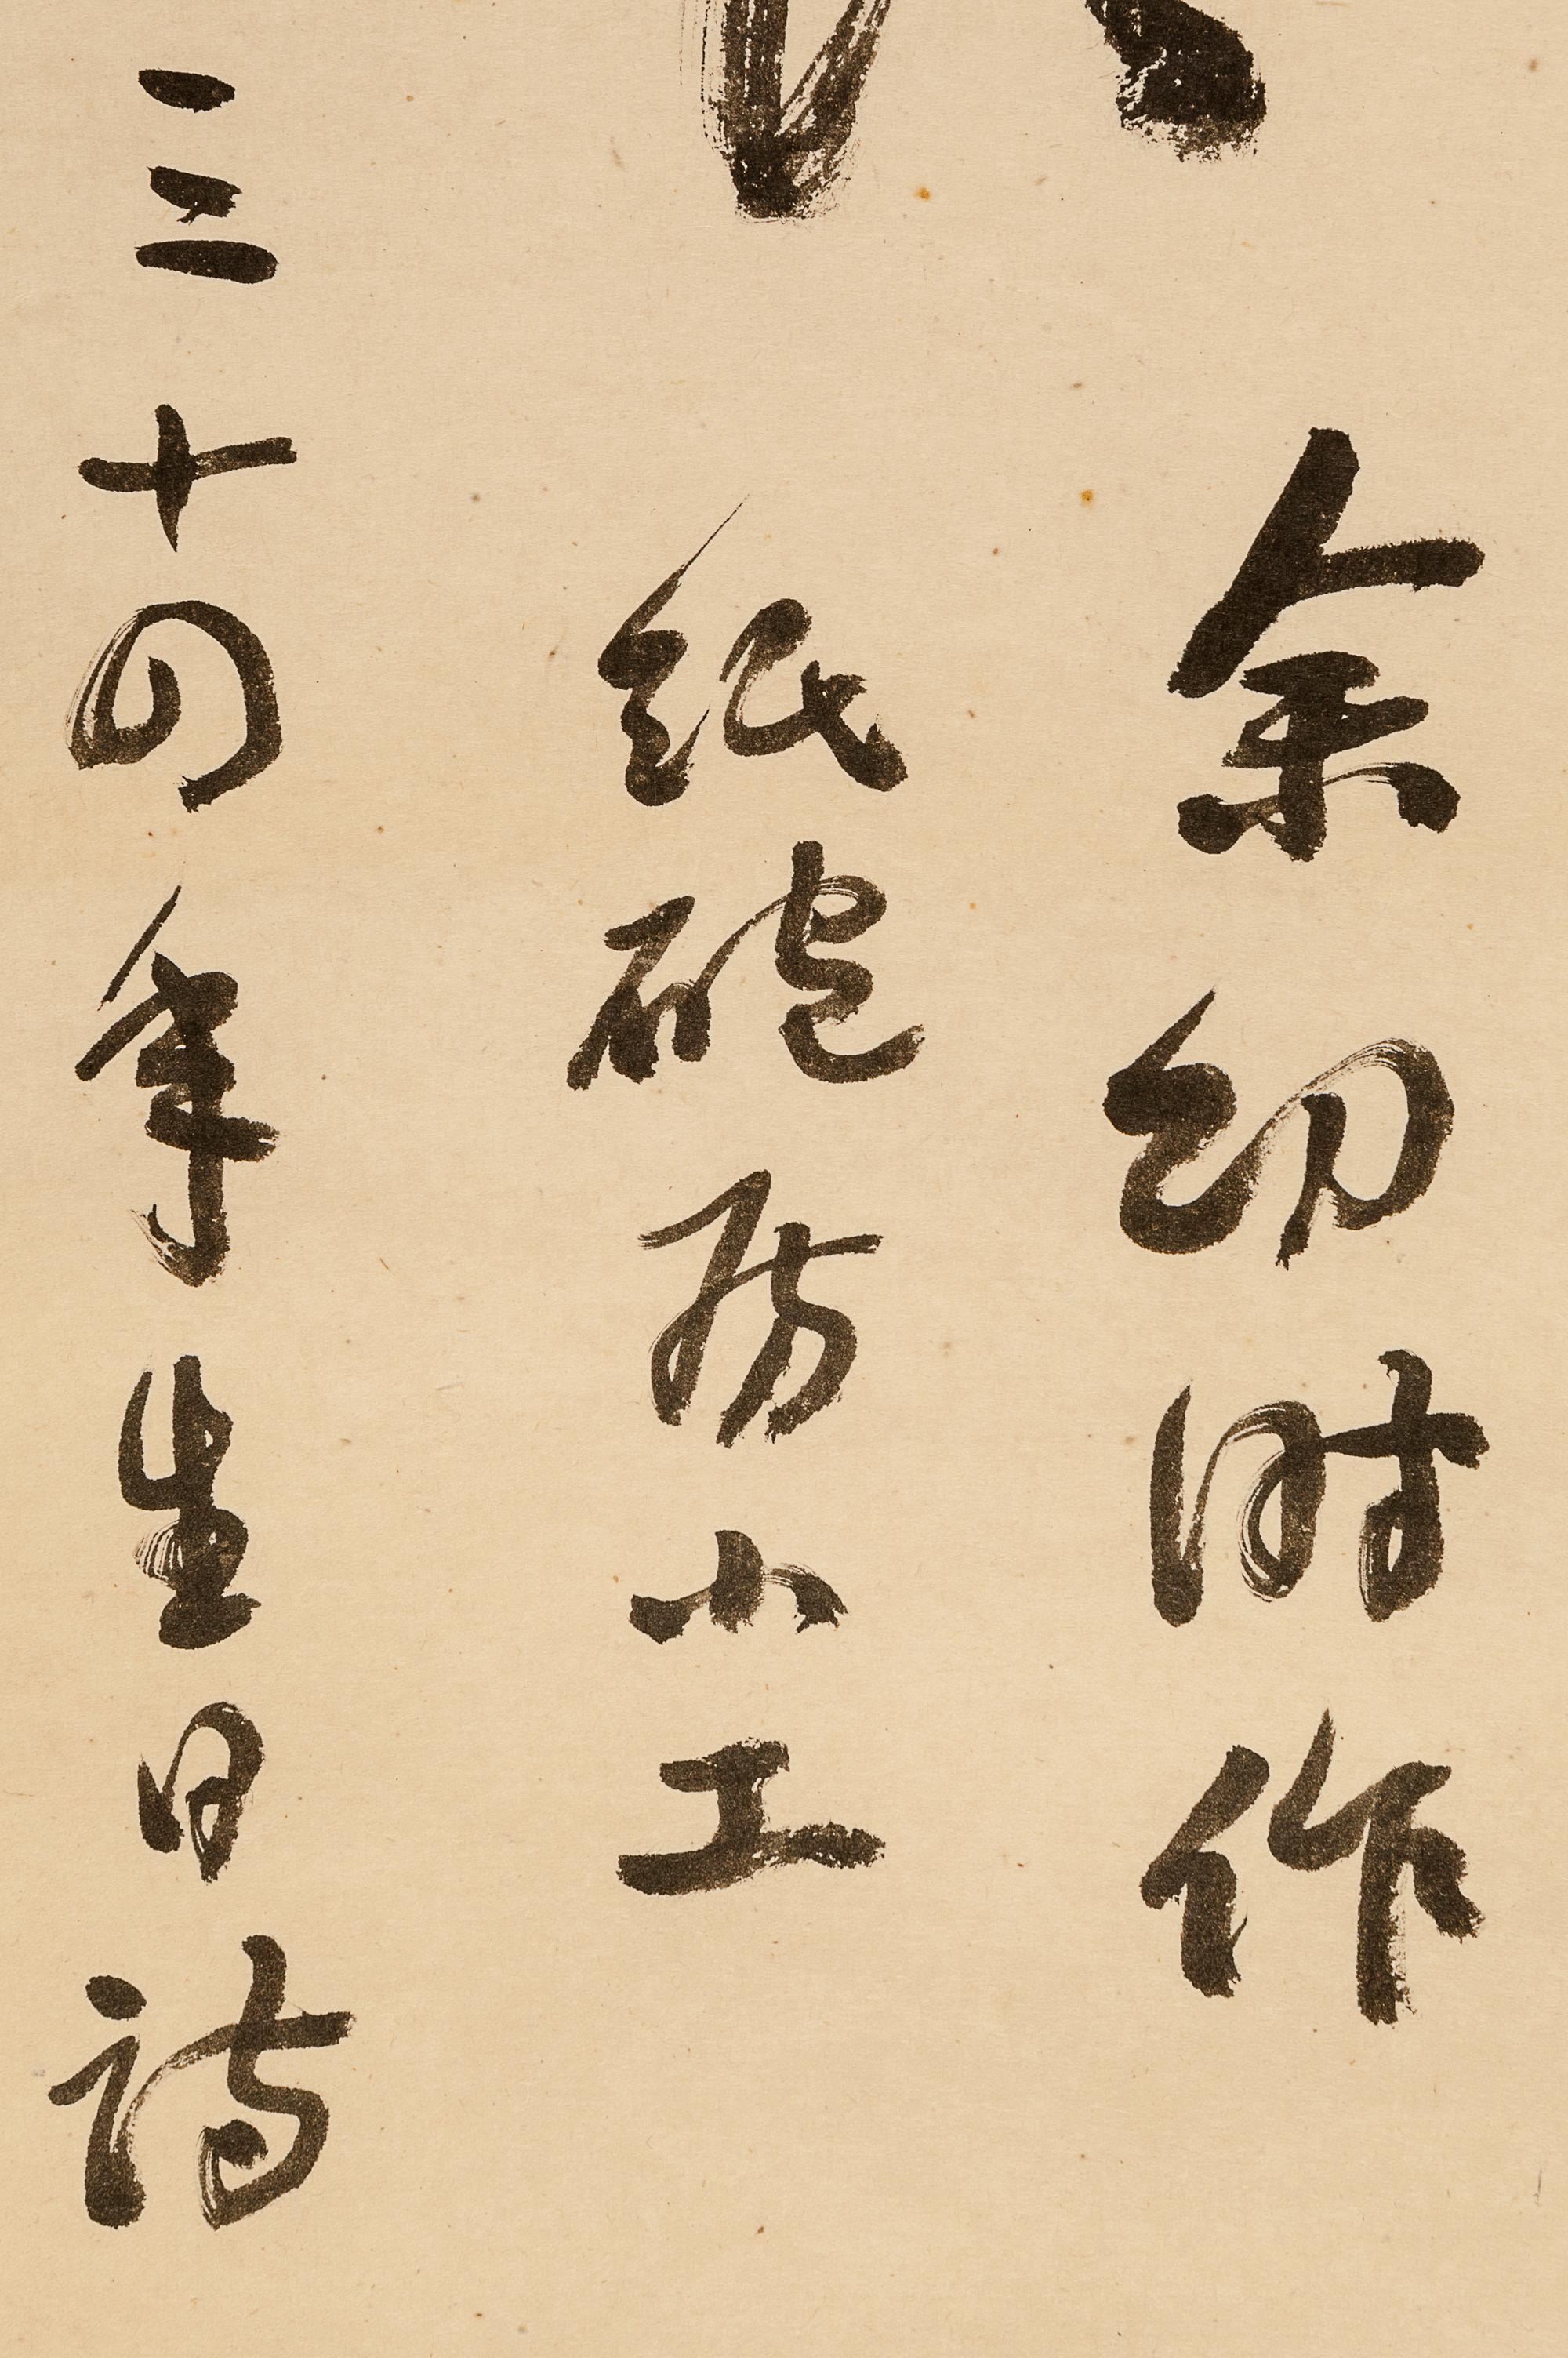 余幼時作
紙砲房小工
三十四年生日詩